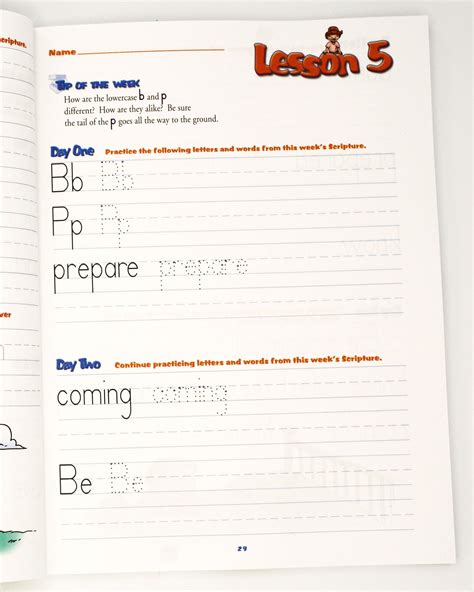 Name
Lesson 5
Tip of the Week
How are the lowercase b and p
different? How are they alike? Be sure
the tail of the p goes all the way to the ground.
Day One Practice the following letters and words from this week's Scripture.
Bb Bb
Pp Pp
prepare prepare
Day Two Continue practicing letters and words from this week's Scripture.
coming coming
Be Be
29